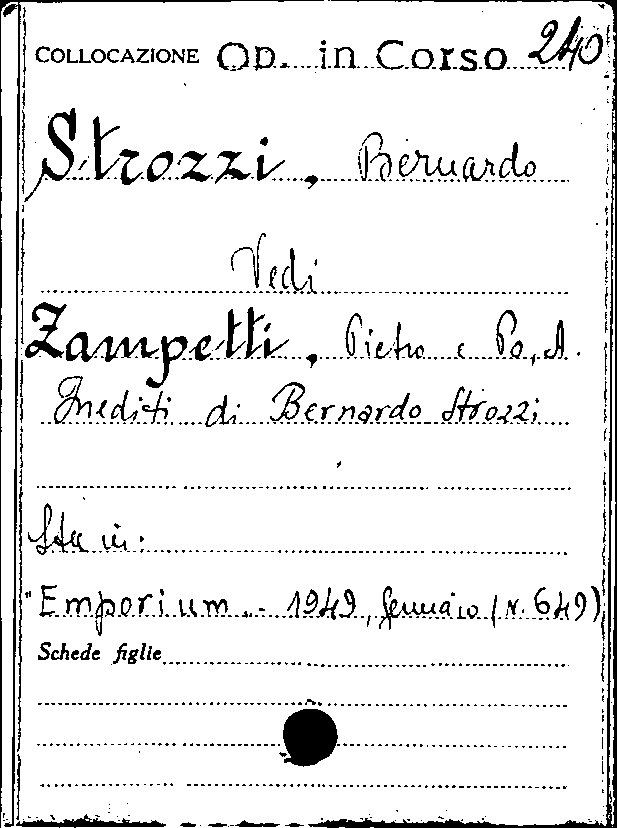 COLLOCAZIONE Op. in Corso 240
Strozzi, Bernardo
Vedi
Zampetti, Pietro e Po, A.
Inediti di Bernardo Strozzi
Sta in:
"Emporium". - 1949, Gennaio (N. 649)
Schede figlie